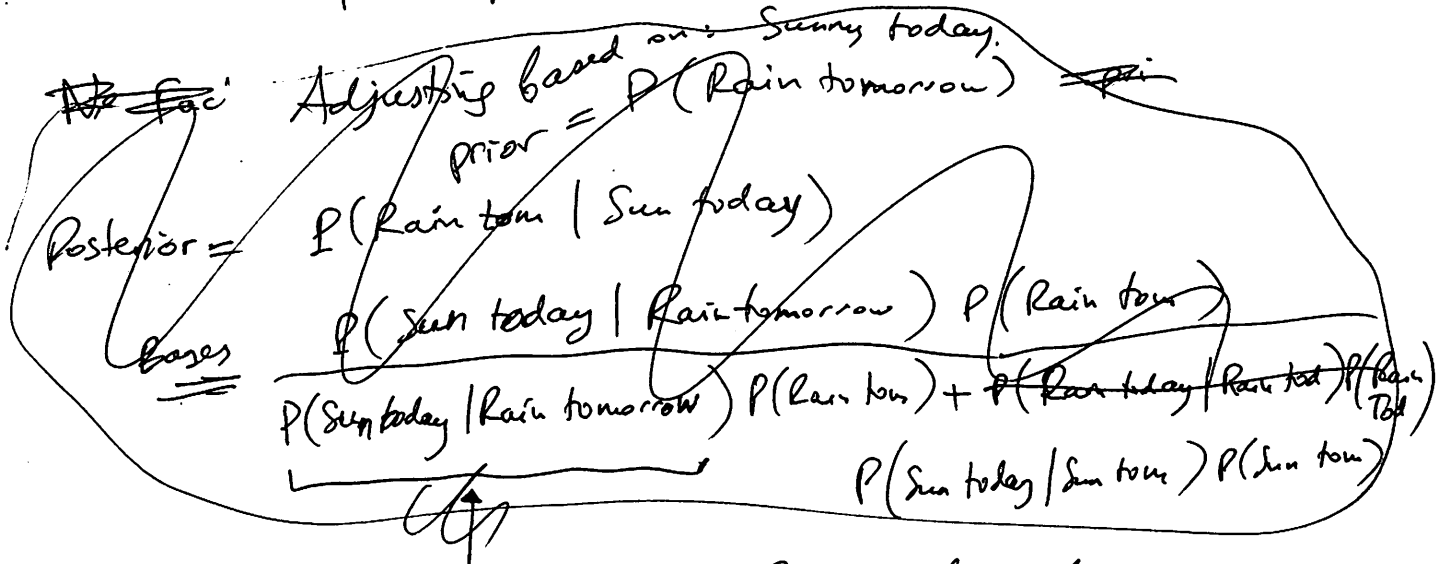 Adjusting based on: Sunny today.
prior = P(Rain tomorrow)
Posterior = P(Rain tom | Sun today)
Bayes = P(Sun today | Rain tomorrow) P(Rain tom)
P(Sun today | Rain tomorrow) P(Rain tom) + P(Rain today | Rain tod) P(Rain Tod)
P(Sun today | Sun tom) P(Sun tom)